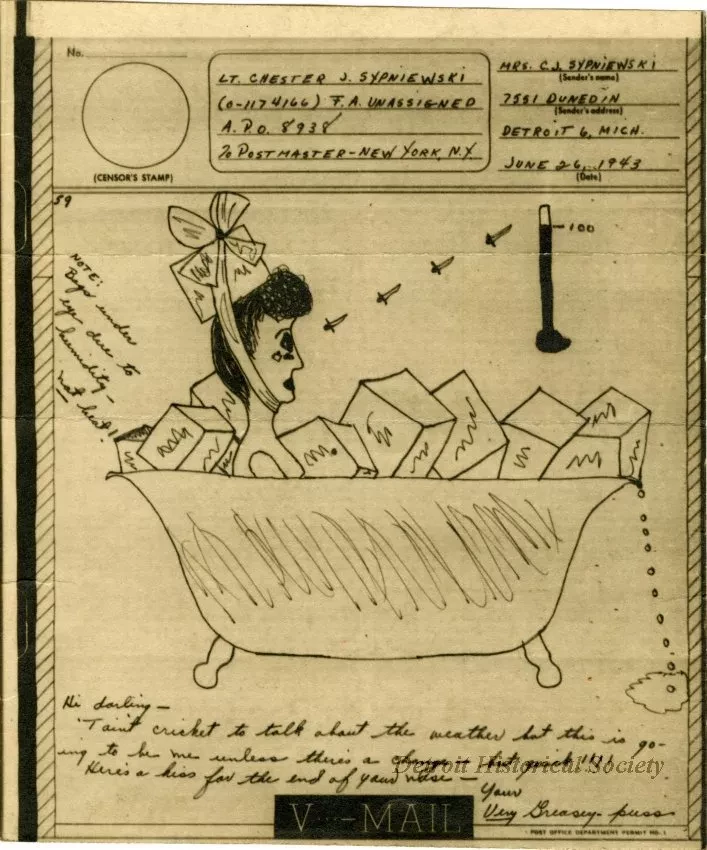 No.
(CENSOR'S STAMP)
LT. CHESTER J. SYPNIEWSKI
(O-1174166) F.A. UNASSIGNED
A.P.O. 8938
% POSTMASTER-NEW YORK, N.Y.
MRS. C.J. SYPNIEWSKI
(Sender's name)
7551 DUNEDIN
(Sender's address)
DETROIT 6, MICH.
JUNE 26, 1943
(Date)
59
100
NOTE:
Bags under
eye due to
humidity-
not heat!!
Hi darling-
'Taint cricket to talk about the weather but this is go-
ing to be me unless there's a change - but quick!!!!
Here's a kiss for the end of your nose -
Your
Very Greasey-puss
Detroit Historical Society
V···-MAIL
POST OFFICE DEPARTMENT PERMIT NO. 1